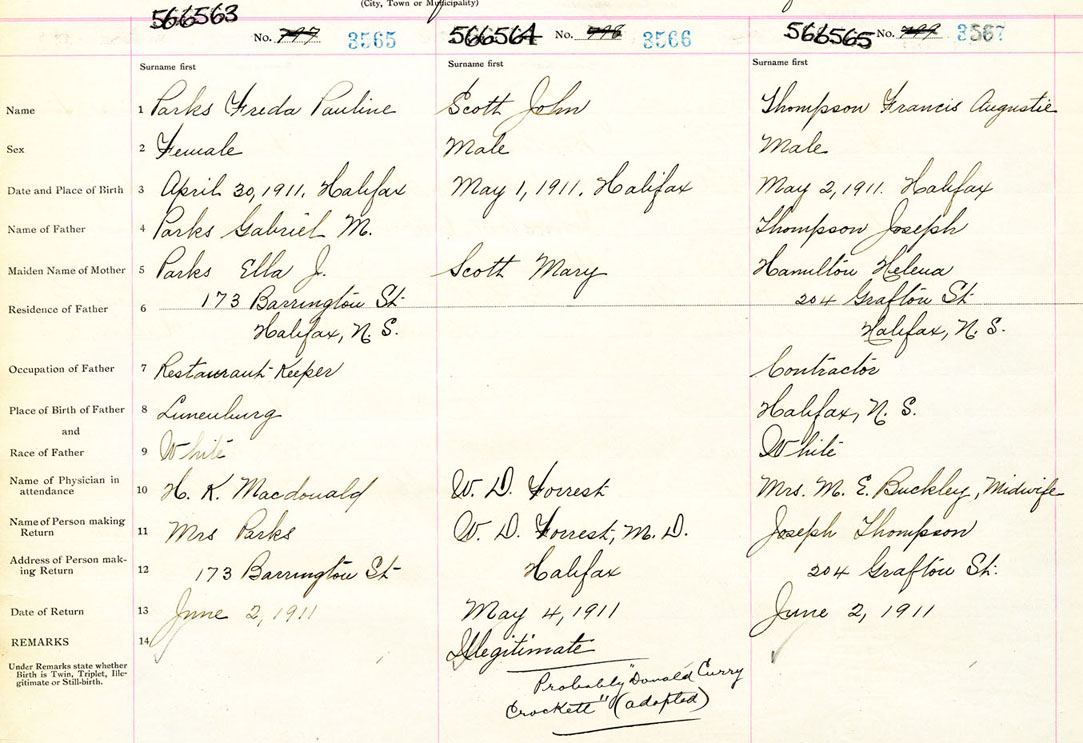 (City, Town or Municipality)
566563 566564 566565
No. 797 3565 No. 798 3566 No. 799 3567
Surname first Surname first Surname first
Name 1 Parks Freda Pauline Scott John Thompson Francis Augustie
Sex 2 Female Male Male
Date and Place of Birth 3 April 30, 1911, Halifax May 1, 1911, Halifax May 2, 1911. Halifax
Name of Father 4 Parks Gabriel M. Thompson Joseph
Maiden Name of Mother 5 Parks Ella J. Scott Mary Hamilton Helena
Residence of Father 6 173 Barrington St. 204 Grafton St.
Halifax, N. S. Halifax, N. S.
Occupation of Father 7 Restaurant Keeper Contractor
Place of Birth of Father 8 Lunenburg Halifax, N. S.
and
Race of Father 9 White White
Name of Physician in
attendance 10 H. K. Macdonald W. D. Forrest Mrs. M. E. Buckley, Midwife
Name of Person making
Return 11 Mrs Parks W. D. Forrest, M. D. Joseph Thompson
Address of Person mak-
ing Return 12 173 Barrington St. Halifax 204 Grafton St.
Date of Return 13 June 2, 1911 May 4, 1911 June 2, 1911
REMARKS 14 Illegitimate
Under Remarks state whether
Birth is Twin, Triplet, Ille-
gitimate or Still-birth.
Probably "Donald Curry
Crockett" (adopted)